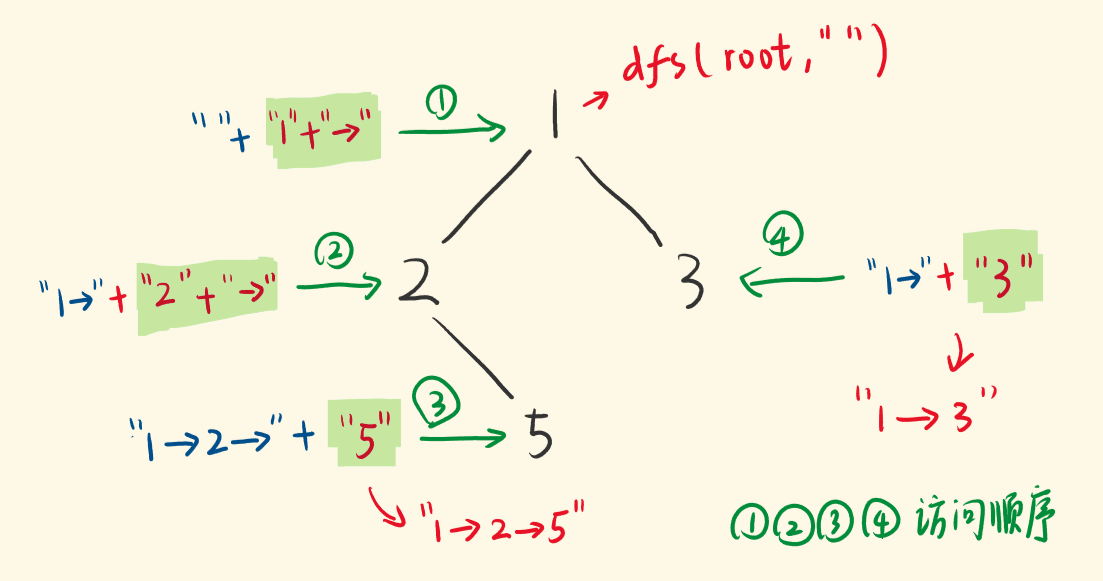 dfs(root,"")
""+ "1"+"→" ① 1
"1→"+ "2"+"→" ② 2
3 ④ "1→"+ "3"
"1→3"
"1→2→"+ "5" ③ 5
"1→2→5"
①②③④ 访问顺序